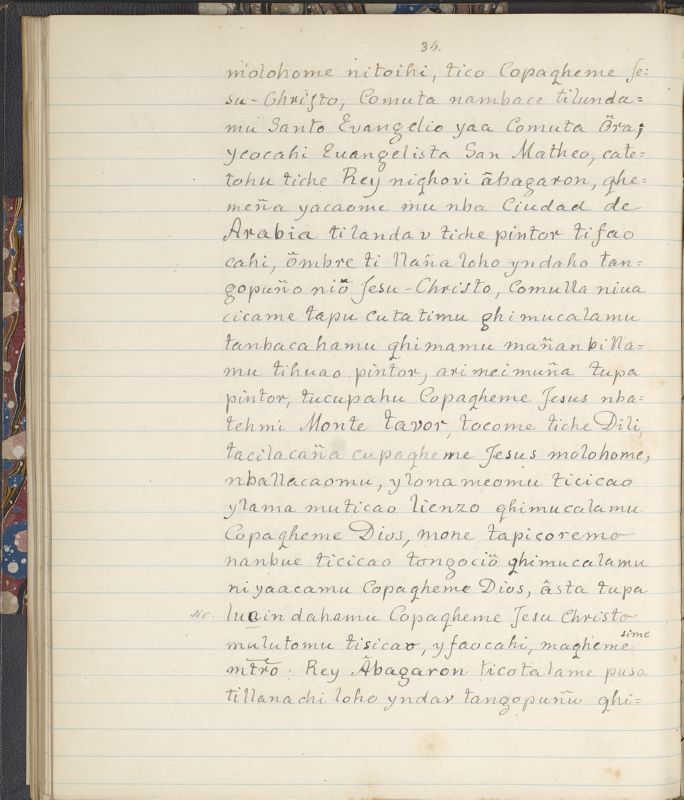 35.
molohome nitoihi, tico Copaqheme Je=
su-Christo, Comuta nambace tilunda=
mu Santo Evangelio yaa Comuta Õra;
ycocahi Euangelista San Matheo, cate=
tohu tiche Rey niqhovi âbagaron, qhe=
meña yacaome mu nba Ciudad de
Arabia tilandav tiche pintor tifao
cahi, õmbre ti llaña loho yndaho tan=
gopuño niõ Jesu-Christo, Comulla niua
cicame tapu cutatimu ghimucalamu
tanbacahamu qhimamu mañanbilla=
mu tihuao pintor, arimeimuña tupa
pintor, tucupahu Copaqheme Jesus nba=
tehmi Monte tavor, tocome tiche Dili,
tacilacaña cupaqheme Jesus molohome,
nballacaomu, ylonameomu ticicao
ylama muticao lienzo qhimucalamu
Copaqheme Dios, mone tapicoremo
nanbue ticicao tongociõ qhimucalamu
niyaacamu Copaqheme Dios, âsta tupa
sic. luaindahamu Copaqheme Jesu Christo
mulutomu tisicao, yfaocahi, maqheme sime
mtro. Rey Âbagaron ticotalame pusa
tillanachi loho yndav tangopuñu qhi=